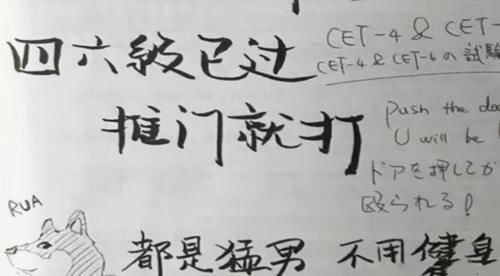 四六级已过
CET-4 & CET-
CET-4 & CET-6の試験
推门就打
push the
U will be
ドアを押して
殴られる！
RUA
都是猛男 不用健身